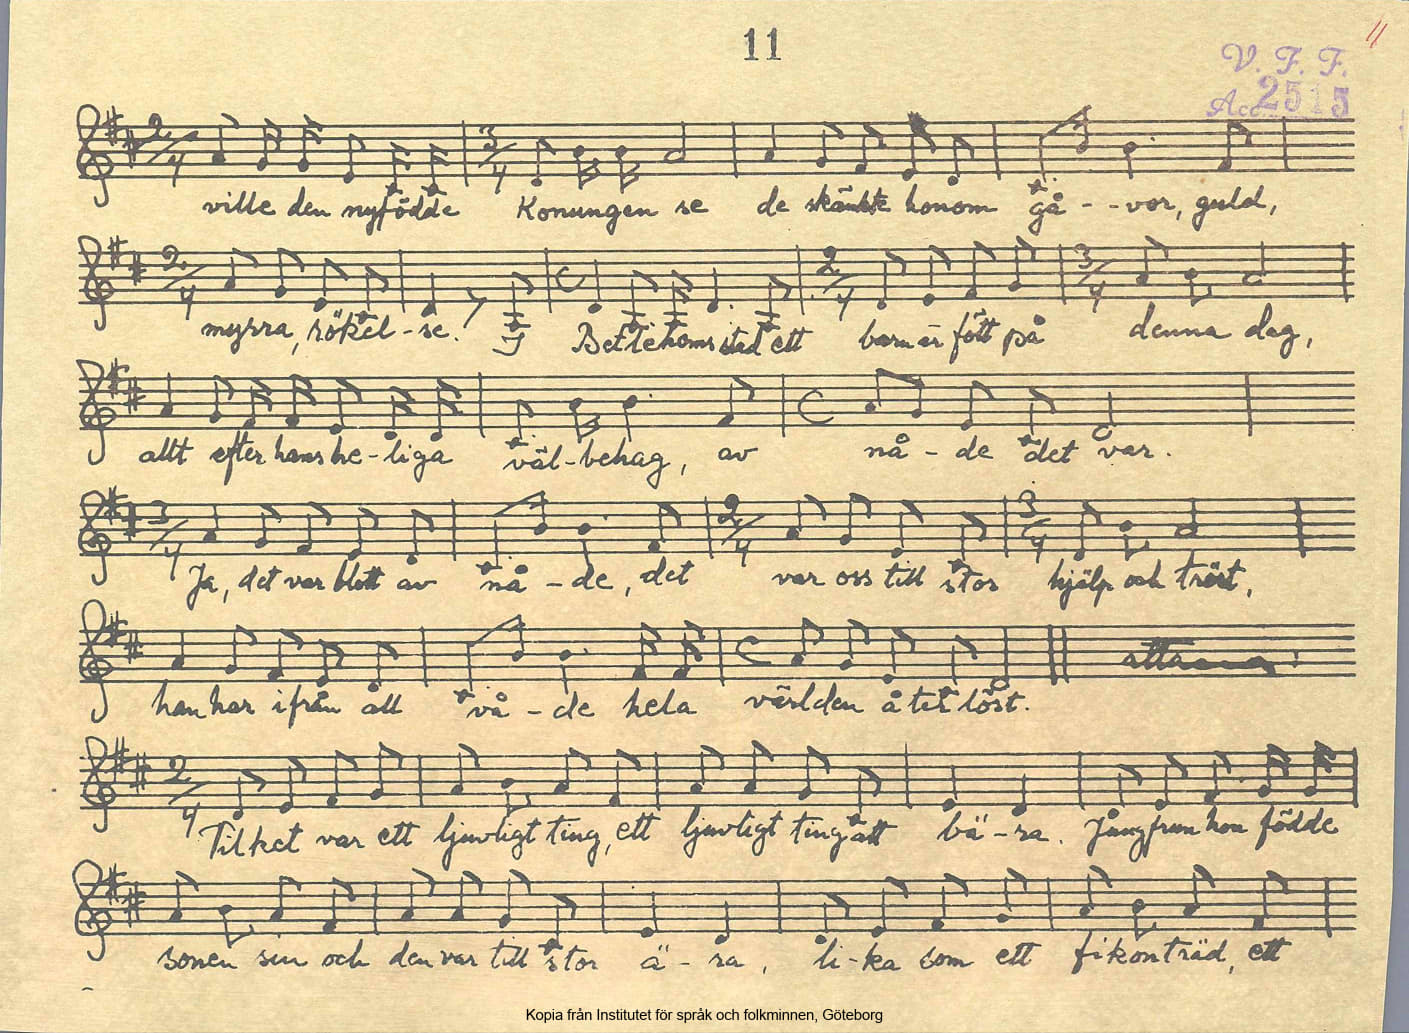 11
11
V. F. F.
Acc. 2515
ville den nyfödde Konungen se de skänkte honom gå - - vor, guld,
myrra, rökel - se. I Betlehems stad ett barn är fött på denna dag,
allt efter hans he - liga väl - behag, av nå - de det var.
Ja, det var blott av nå - de, det var oss till stor hjälp och tröst,
han har ifrån all vå - de hela världen åter löst.
Tilket var ett ljuvligt ting, ett ljuvligt ting att bä - ra. Jungfrun hon födde
sonen sin och den var till stor ä - ra, li - ka som ett fikonträd, ett
Kopia från Institutet för språk och folkminnen, Göteborg